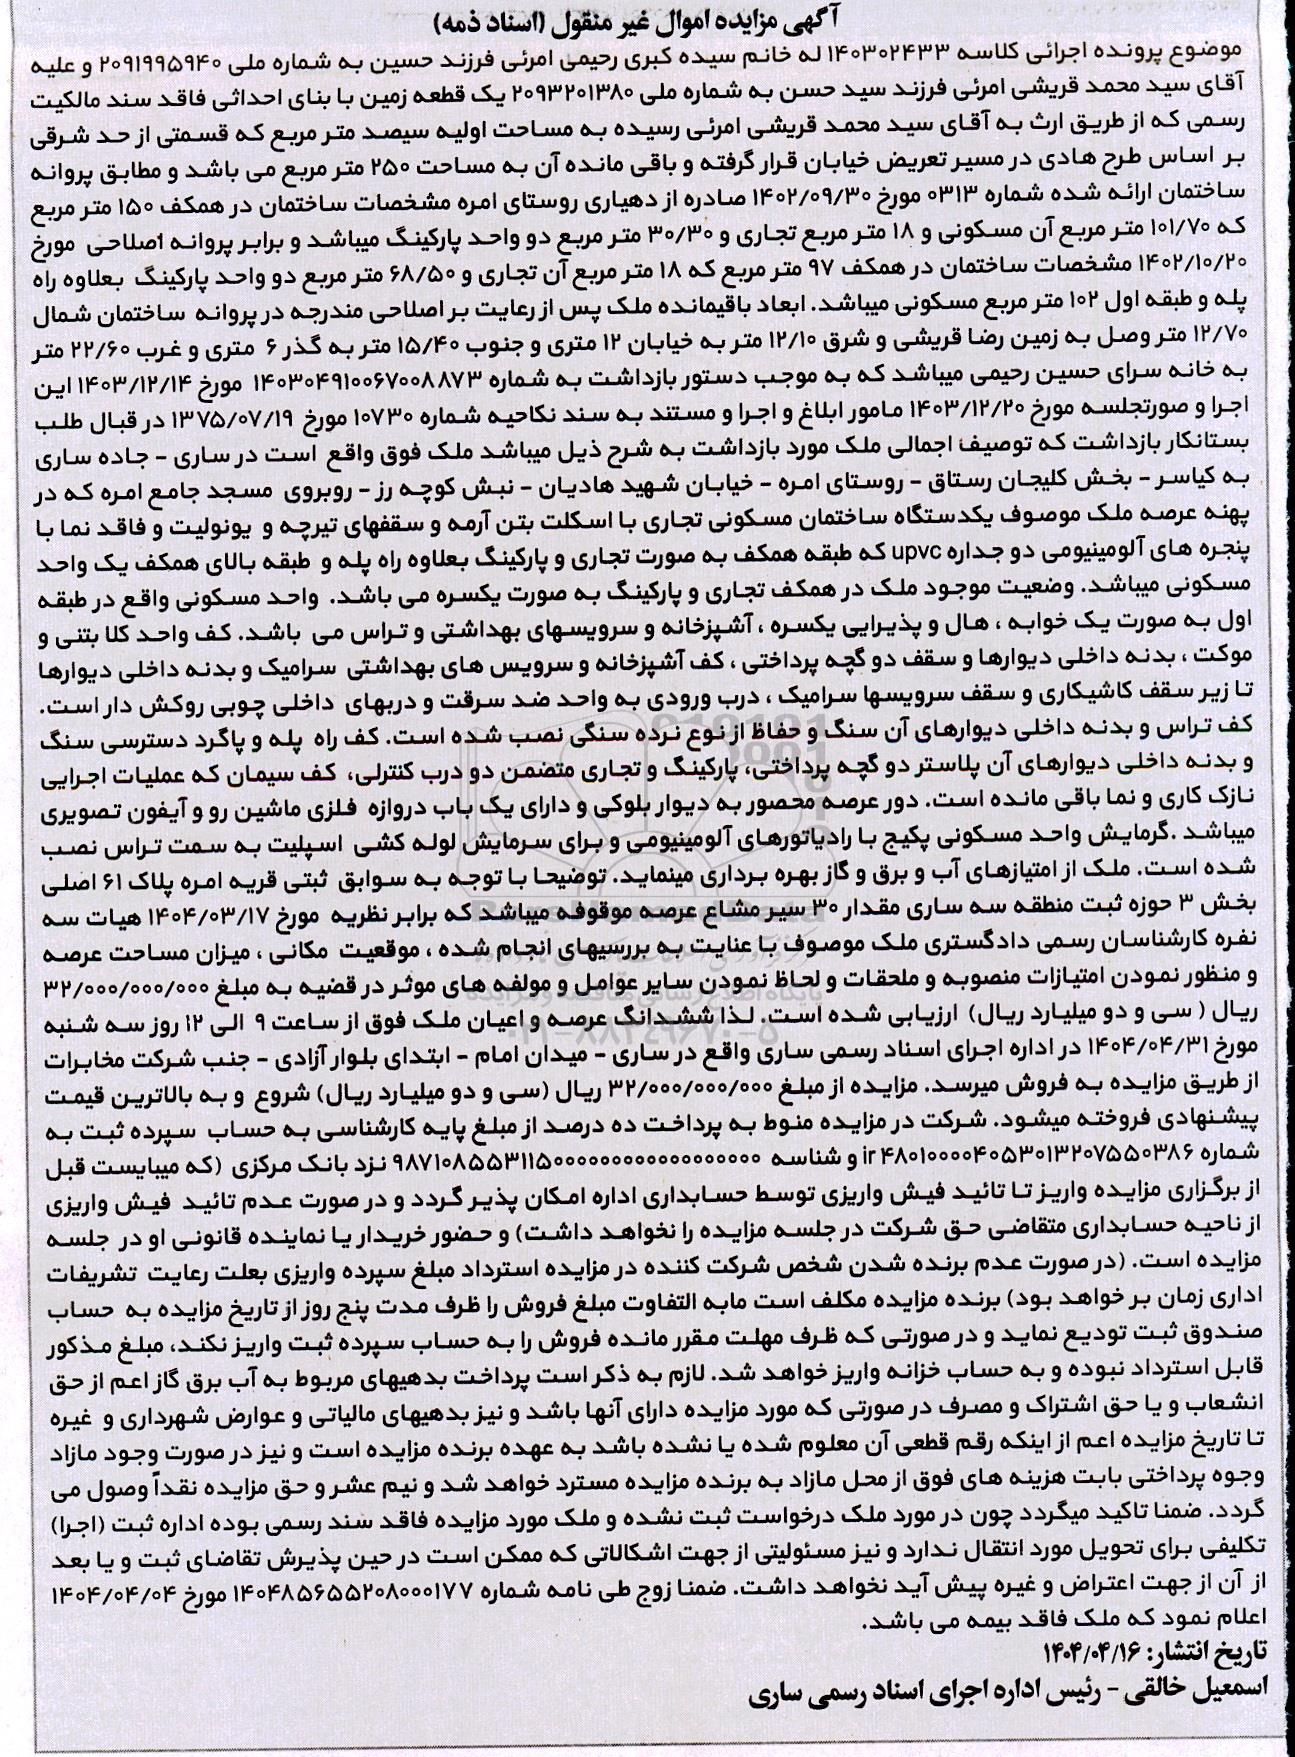 آگهی مزایده اموال غیر منقول (اسناد ذمه)
موضوع پرونده اجرائی کلاسه ۱۴۰۳۰۲۴۳۳ له خانم سیده کبری رحیمی امرئی فرزند حسین به شماره ملی ۲۰۹۱۹۹۵۹۴۰ و علیه
آقای سید محمد قریشی امرئی فرزند سید حسن به شماره ملی ۲۰۹۳۲۰۱۳۸۰ یک قطعه زمین با بنای احداثی فاقد سند مالکیت
رسمی که از طریق ارث به آقای سید محمد قریشی امرئی رسیده به مساحت اولیه سیصد متر مربع که قسمتی از حد شرقی
بر اساس طرح هادی در مسیر تعریض خیابان قرار گرفته و باقی مانده آن به مساحت ۲۵۰ متر مربع می باشد و مطابق پروانه
ساختمان ارائه شده شماره ۰۳۱۳ مورخ ۱۴۰۲/۰۹/۳۰ صادره از دهیاری روستای امره مشخصات ساختمان در همکف ۱۵۰ متر مربع
که ۱۰۱/۷۰ متر مربع آن مسکونی و ۱۸ متر مربع تجاری و ۳۰/۳۰ متر مربع دو واحد پارکینگ میباشد و برابر پروانه اصلاحی مورخ
۱۴۰۲/۱۰/۲۰ مشخصات ساختمان در همکف ۹۷ متر مربع که ۱۸ متر مربع آن تجاری و ۶۸/۵۰ متر مربع دو واحد پارکینگ بعلاوه راه
پله و طبقه اول ۱۰۲ متر مربع مسکونی میباشد. ابعاد باقیمانده ملک پس از رعایت بر اصلاحی مندرجه در پروانه ساختمان شمال
۱۲/۷۰ متر وصل به زمین رضا قریشی و شرق ۱۲/۱۰ متر به خیابان ۱۲ متری و جنوب ۱۵/۴۰ متر به گذر ۶ متری و غرب ۲۲/۶۰ متر
به خانه سرای حسین رحیمی میباشد که به موجب دستور بازداشت به شماره ۱۴۰۳۰۴۹۱۰۰۶۷۰۰۸۸۷۳ مورخ ۱۴۰۳/۱۲/۱۴ این
اجرا و صورتجلسه مورخ ۱۴۰۳/۱۲/۲۰ مامور ابلاغ و اجرا و مستند به سند نکاحیه شماره ۱۰۷۳۰ مورخ ۱۳۷۵/۰۷/۱۹ در قبال طلب
بستانکار بازداشت که توصیف اجمالی ملک مورد بازداشت به شرح ذیل میباشد ملک فوق واقع است در ساری – جاده ساری
به کیاسر – بخش کلیجان رستاق – روستای امره – خیابان شهید هادیان – نبش کوچه رز – روبروی مسجد جامع امره که در
پهنه عرصه ملک موصوف یکدستگاه ساختمان مسکونی تجاری با اسکلت بتن آرمه و سقفهای تیرچه و یونولیت و فاقد نما با
پنجره های آلومینیومی دو جداره upvc که طبقه همکف به صورت تجاری و پارکینگ بعلاوه راه پله و طبقه بالای همکف یک واحد
مسکونی میباشد. وضعیت موجود ملک در همکف تجاری و پارکینگ به صورت یکسره می باشد. واحد مسکونی واقع در طبقه
اول به صورت یک خوابه ، هال و پذیرایی یکسره ، آشپزخانه و سرویسهای بهداشتی و تراس می باشد. کف واحد کلا بتنی و
موکت ، بدنه داخلی دیوارها و سقف دو گچه پرداختی ، کف آشپزخانه و سرویس های بهداشتی سرامیک و بدنه داخلی دیوارها
تا زیر سقف کاشیکاری و سقف سرویسها سرامیک ، درب ورودی به واحد ضد سرقت و دربهای داخلی چوبی روکش دار است.
کف تراس و بدنه داخلی دیوارهای آن سنگ و حفاظ از نوع نرده سنگی نصب شده است. کف راه پله و پاگرد دسترسی سنگ
و بدنه داخلی دیوارهای آن پلاستر دو گچه پرداختی، پارکینگ و تجاری متضمن دو درب کنترلی، کف سیمان که عملیات اجرایی
نازک کاری و نما باقی مانده است. دور عرصه محصور به دیوار بلوکی و دارای یک باب دروازه فلزی ماشین رو و آیفون تصویری
میباشد .گرمایش واحد مسکونی پکیج با رادیاتورهای آلومینیومی و برای سرمایش لوله کشی اسپلیت به سمت تراس نصب
شده است. ملک از امتیازهای آب و برق و گاز بهره برداری مینماید. توضیحا با توجه به سوابق ثبتی قریه امره پلاک ۶۱ اصلی
بخش ۳ حوزه ثبت منطقه سه ساری مقدار ۳۰ سیر مشاع عرصه موقوفه میباشد که برابر نظریه مورخ ۱۴۰۴/۰۳/۱۷ هیات سه
نفره کارشناسان رسمی دادگستری ملک موصوف با عنایت به بررسیهای انجام شده ، موقعیت مکانی ، میزان مساحت عرصه
و منظور نمودن امتیازات منصوبه و ملحقات و لحاظ نمودن سایر عوامل و مولفه های موثر در قضیه به مبلغ ۳۲/۰۰۰/۰۰۰/۰۰۰
ریال ( سی و دو میلیارد ریال) ارزیابی شده است. لذا ششدانگ عرصه و اعیان ملک فوق از ساعت ۹ الی ۱۲ روز سه شنبه
مورخ ۱۴۰۴/۰۴/۳۱ در اداره اجرای اسناد رسمی ساری واقع در ساری – میدان امام – ابتدای بلوار آزادی – جنب شرکت مخابرات
از طریق مزایده به فروش میرسد. مزایده از مبلغ ۳۲/۰۰۰/۰۰۰/۰۰۰ ریال (سی و دو میلیارد ریال) شروع و به بالاترین قیمت
پیشنهادی فروخته میشود. شرکت در مزایده منوط به پرداخت ده درصد از مبلغ پایه کارشناسی به حساب سپرده ثبت به
شماره ir ۴۸۰۱۰۰۰۰۴۰۵۳۰۱۳۲۰۷۵۵۰۳۸۶ و شناسه ۹۸۷۱۰۸۵۵۳۱۱۵۰۰۰۰۰۰۰۰۰۰۰۰۰۰۰۰۰۰ نزد بانک مرکزی (که میبایست قبل
از برگزاری مزایده واریز تا تائید فیش واریزی توسط حسابداری اداره امکان پذیر گردد و در صورت عدم تائید فیش واریزی
از ناحیه حسابداری متقاضی حق شرکت در جلسه مزایده را نخواهد داشت) و حضور خریدار یا نماینده قانونی او در جلسه
مزایده است. (در صورت عدم برنده شدن شخص شرکت کننده در مزایده استرداد مبلغ سپرده واریزی بعلت رعایت تشریفات
اداری زمان بر خواهد بود) برنده مزایده مکلف است مابه التفاوت مبلغ فروش را ظرف مدت پنج روز از تاریخ مزایده به حساب
صندوق ثبت تودیع نماید و در صورتی که ظرف مهلت مقرر مانده فروش را به حساب سپرده ثبت واریز نکند، مبلغ مذکور
قابل استرداد نبوده و به حساب خزانه واریز خواهد شد. لازم به ذکر است پرداخت بدهیهای مربوط به آب برق گاز اعم از حق
انشعاب و یا حق اشتراک و مصرف در صورتی که مورد مزایده دارای آنها باشد و نیز بدهیهای مالیاتی و عوارض شهرداری و غیره
تا تاریخ مزایده اعم از اینکه رقم قطعی آن معلوم شده یا نشده باشد به عهده برنده مزایده است و نیز در صورت وجود مازاد
وجوه پرداختی بابت هزینه های فوق از محل مازاد به برنده مزایده مسترد خواهد شد و نیم عشر و حق مزایده نقداً وصول می
گردد. ضمنا تاکید میگردد چون در مورد ملک درخواست ثبت نشده و ملک مورد مزایده فاقد سند رسمی بوده اداره ثبت (اجرا)
تکلیفی برای تحویل مورد انتقال ندارد و نیز مسئولیتی از جهت اشکالاتی که ممکن است در حین پذیرش تقاضای ثبت و یا بعد
از آن از جهت اعتراض و غیره پیش آید نخواهد داشت. ضمنا زوج طی نامه شماره ۱۴۰۴۸۵۶۵۵۲۰۸۰۰۰۱۷۷ مورخ ۱۴۰۴/۰۴/۰۴
اعلام نمود که ملک فاقد بیمه می باشد.
تاریخ انتشار: ۱۴۰۴/۰۴/۱۶
اسمعیل خالقی – رئیس اداره اجرای اسناد رسمی ساری